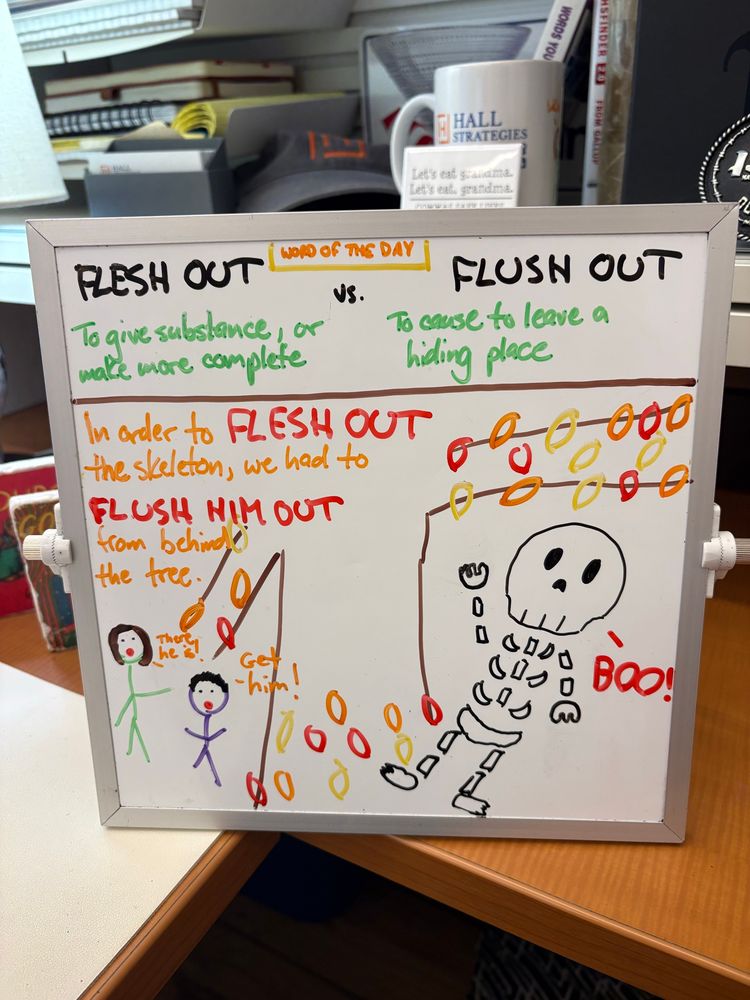 WORDS YOU
HSFINDER 2.0
FROM GALLUP
HALL
STRATEGIES
HALL
Let's eat grandma.
Let's eat, grandma.
COMMAS SAVE LIVES
WORD OF THE DAY
FLESH OUT
vs.
FLUSH OUT
To give substance, or
make more complete
To cause to leave a
hiding place
In order to FLESH OUT
the skeleton, we had to
FLUSH HIM OUT
from behind
the tree.
There
he is!
Get
him!
BOO!